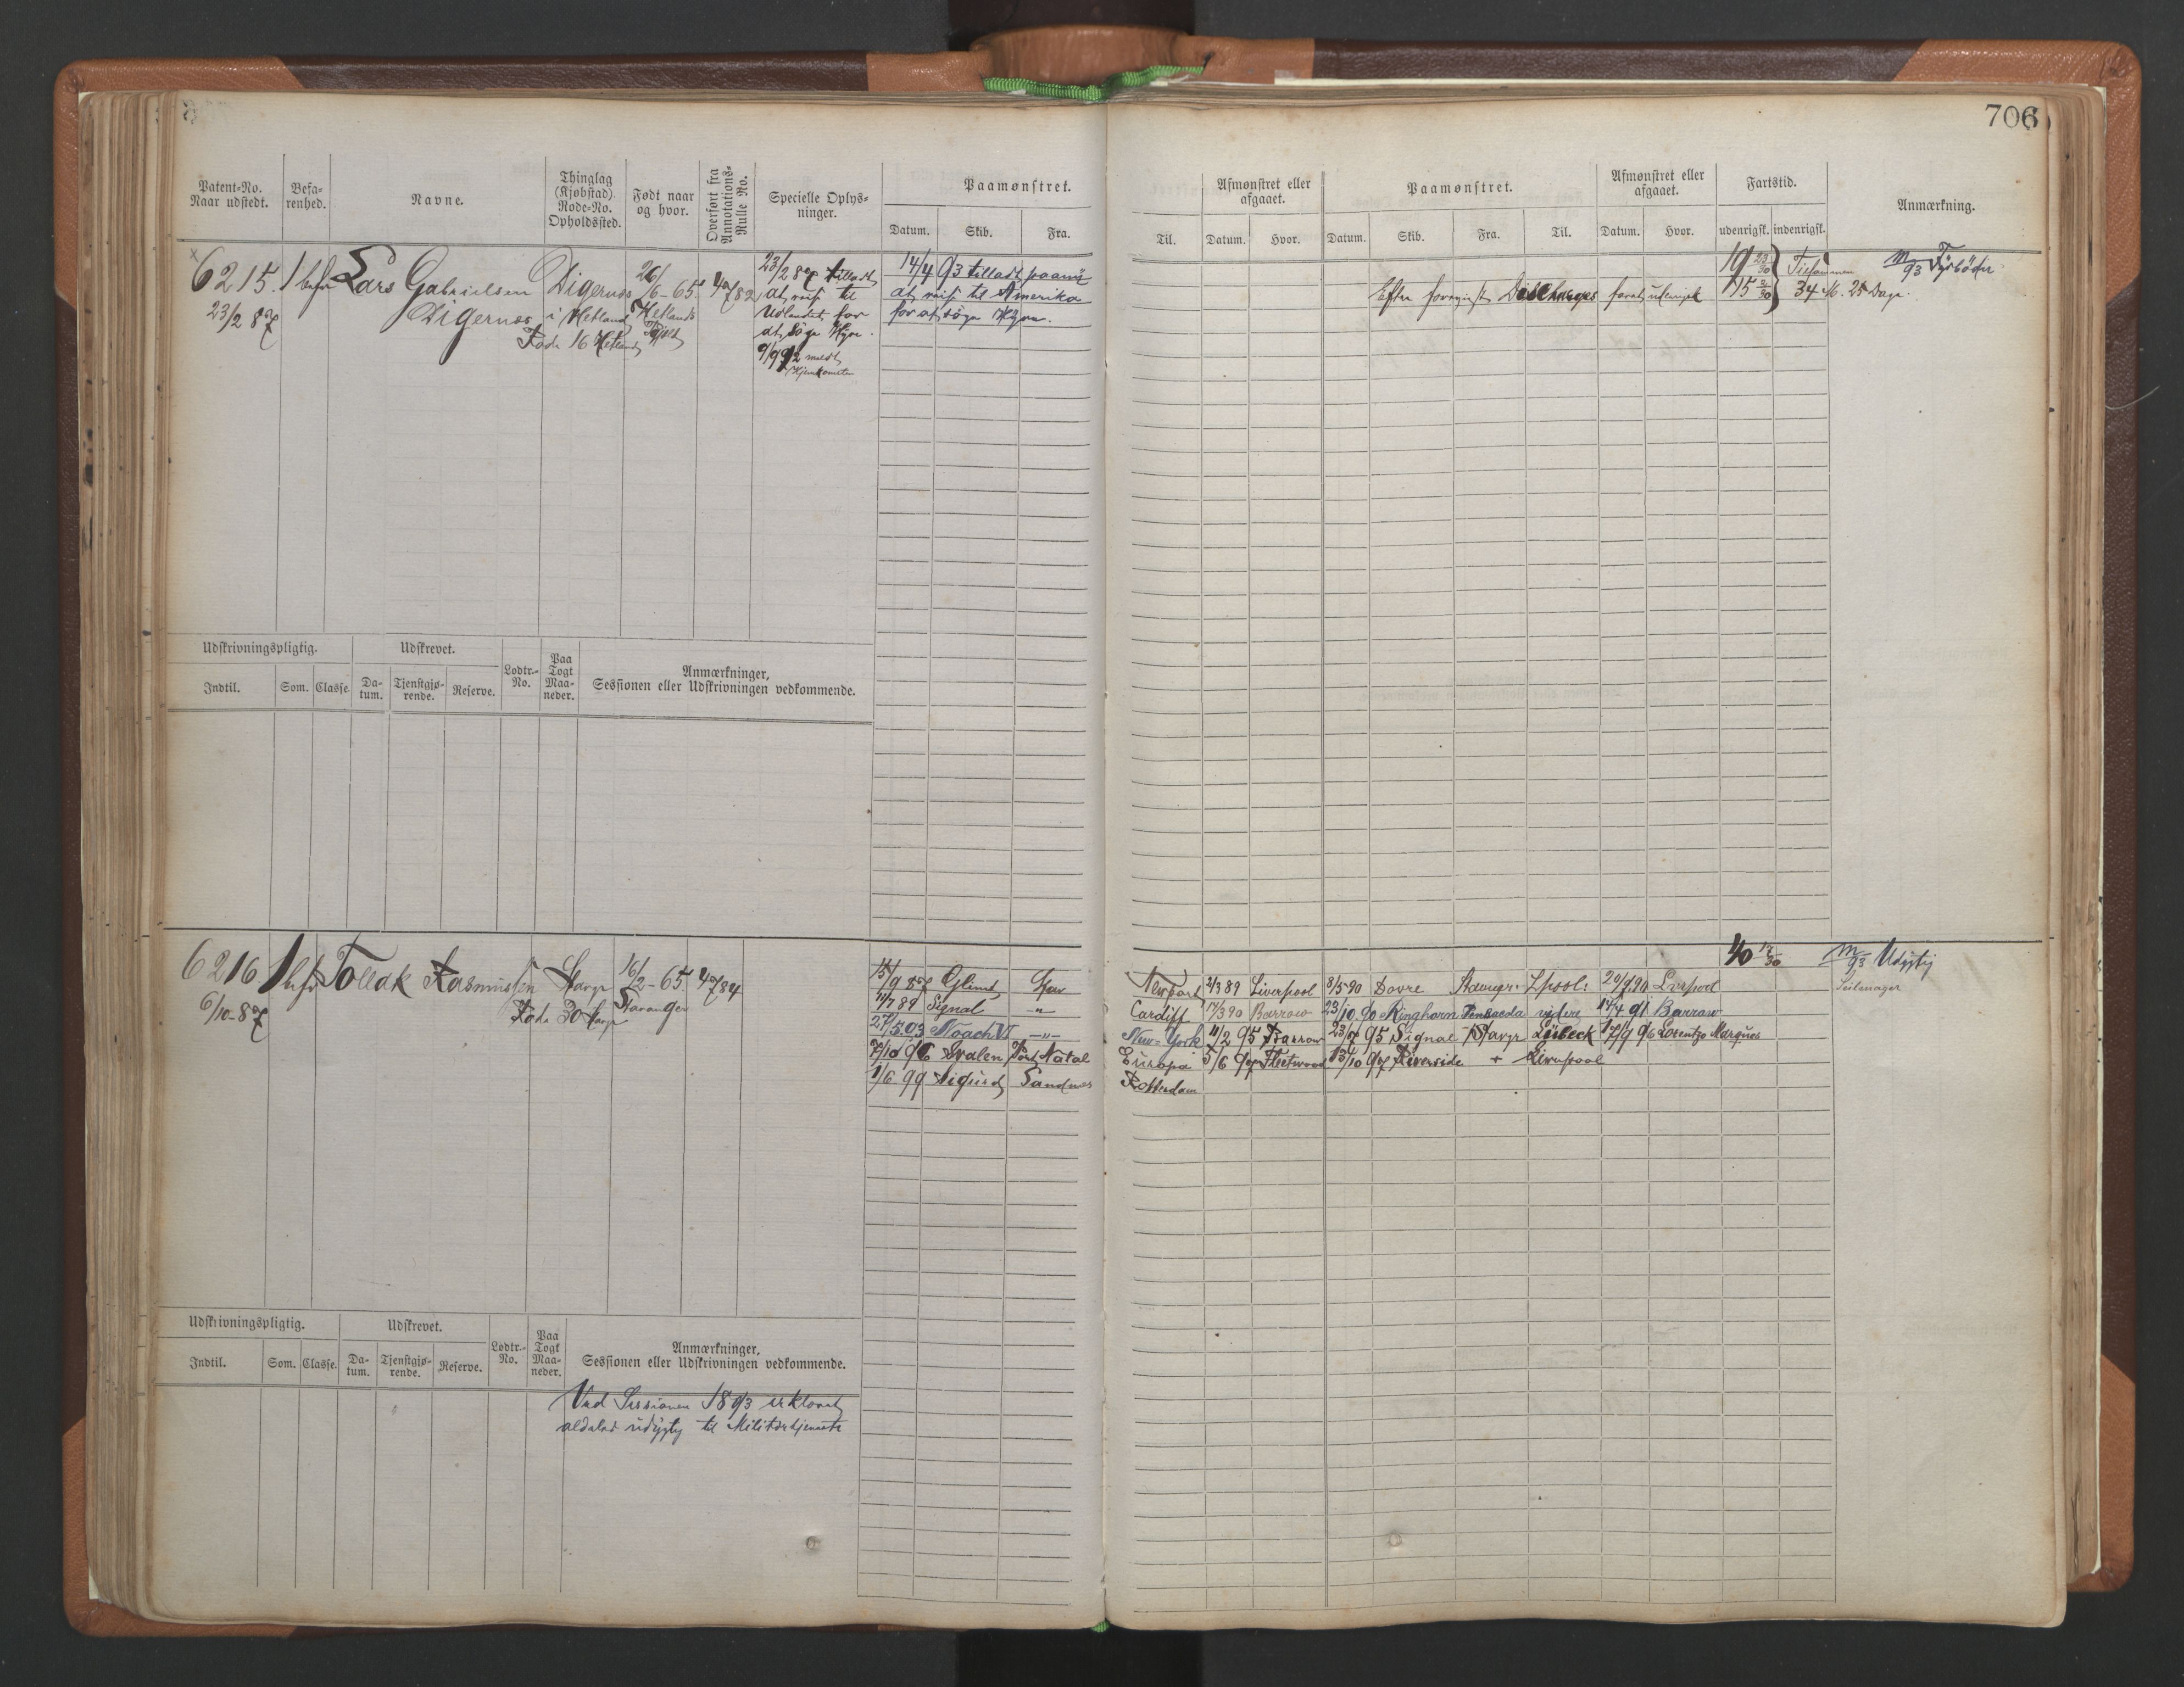 706
Patent-No. Naar udstedt.
Befa-renhed.
Navne.
Thinglag (Kjøbstad) Rode-No. Opholdssted.
Født naar og hvor.
Overført fra Annotations-Rulle No.
Specielle Oplys-ninger.
Paamønstret.
Datum. Skib. Fra.
Til.
Afmønstret eller afgaaet.
Datum. Hvor.
Paamønstret.
Datum. Skib. Fra. Til.
Afmønstret eller afgaaet.
Datum. Hvor.
Fartstid.
udenrigsk. indenrigsk.
Anmærkning.
6215. 1 befr Lars Gabrielsen Digernes 26/6-65.
23/2 87 Digernes i Hetland Hetlands
Rode 16 Hetland
23/2 87 tilladt
at reise til
Udlandet for
at søge Hyre.
9/9 92 meldt
Hjemkomsten
14/4 93 tilladt paany
at reise til Amerika
for at søge Hyre.
Efter foreviist Discharges faret udenrigsk
19 23/30 Tilsammen
15 2/30 34 M. 25 Dage.
M/93 Fyrbøder
Udskrivningspligtig. Udskrevet. Lodtr.-No. Paa Togt Maa-neder. Anmærkninger, Sessionen eller Udskrivningen vedkommende.
Indtil. Som. Classe. Da-tum. Tjenstgjø-rende. Reserve.
6216 1 bfr Tollak Rasmussen Stavgr 16/2-65. 4784
6/10-87 Rode 30 Stavgr Stavanger
15/9 87 Glimt Stav Newport 2/3 89 Liverpool 8/5 90 Dovre Stavngr. Lpool: 20/7 90 Liverpool
11/7 89 Signal " Cardiff 17/3 90 Barrow 23/10 90 Ringhorn Pensacola videre 14/4 91 Barrow
27/5 93 Noach VI -"- New-York 11/2 95 Barrow 23/7 95 Signal Stavgr Lübeck 17/9 96 Lorentzo Marques
7/10 96 Svalen Port Natal Europa 5/6 97 Fleetwood 13/10 97 Riverside + Liverpool
1/6 99 Sigurd Sandnes Rotterdam
40 12/30
M/93 Udygtig
Seilmager
Udskrivningspligtig. Udskrevet. Lodtr.-No. Paa Togt Maa-neder. Anmærkninger, Sessionen eller Udskrivningen vedkommende.
Indtil. Som. Classe. Da-tum. Tjenstgjø-rende. Reserve.
Ved Sessionen 1893 erklæret
aldeles udygtig til Militærtjeneste